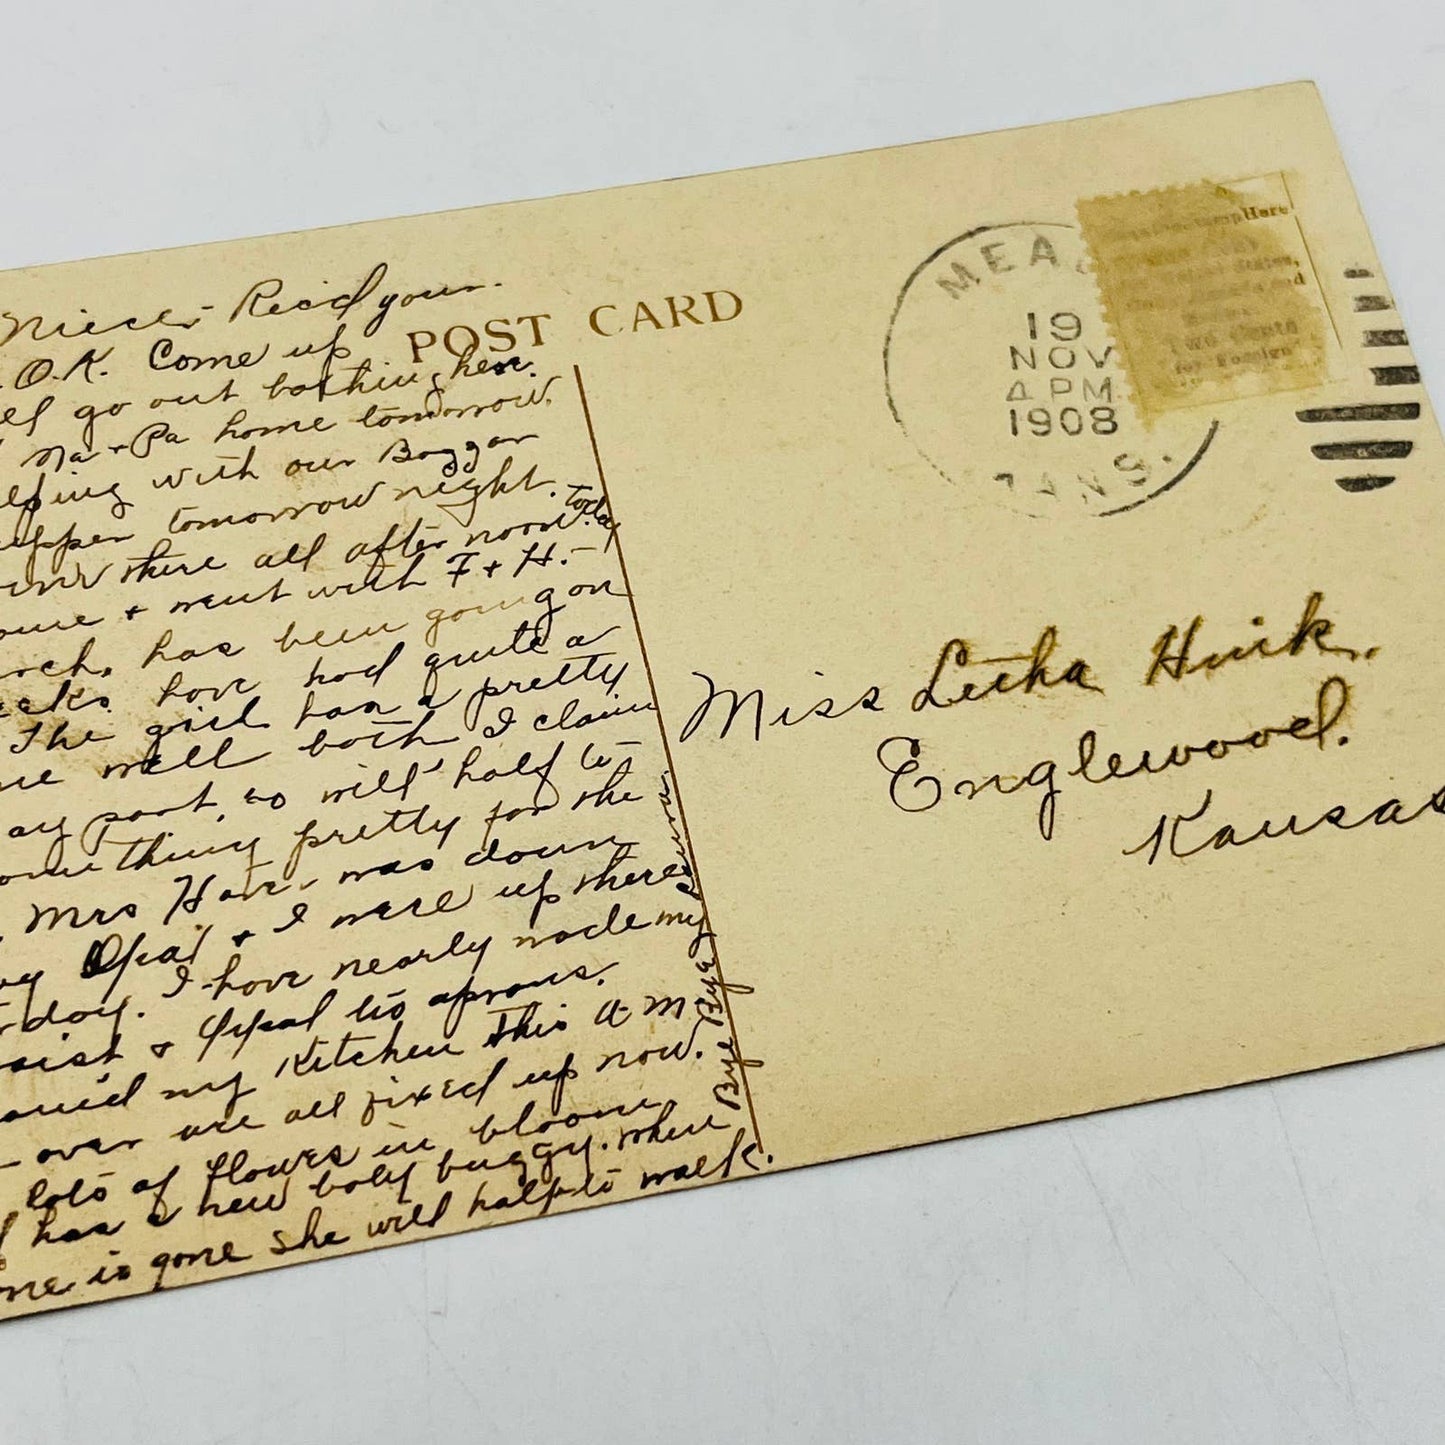 POST CARD
Nieces Rec'd your
O.K. Come up
go out bathing here.
Ma + Pa home tomorrow.
with our Bazzar
tomorrow night.
there all after noon today
+ went with F + H.-
has been going on
have had quite a
The girl has a pretty
well both I claim
my part, so will half to
something pretty for the
Mrs Hair was down
Opal + I were up there
day. I have nearly made my
+ Opal to aprons.
my Kitchen this A M
over are all fixed up now.
lots of flowers in bloom
has a new baby buggy. when
is gone she will half to walk.
Bye Bye
MEA
19
NOV
4 PM
1908
KANS.
Stamp Here
Two Cents
for Foreign
Miss Letha Hink.
Englewood.
Kansas